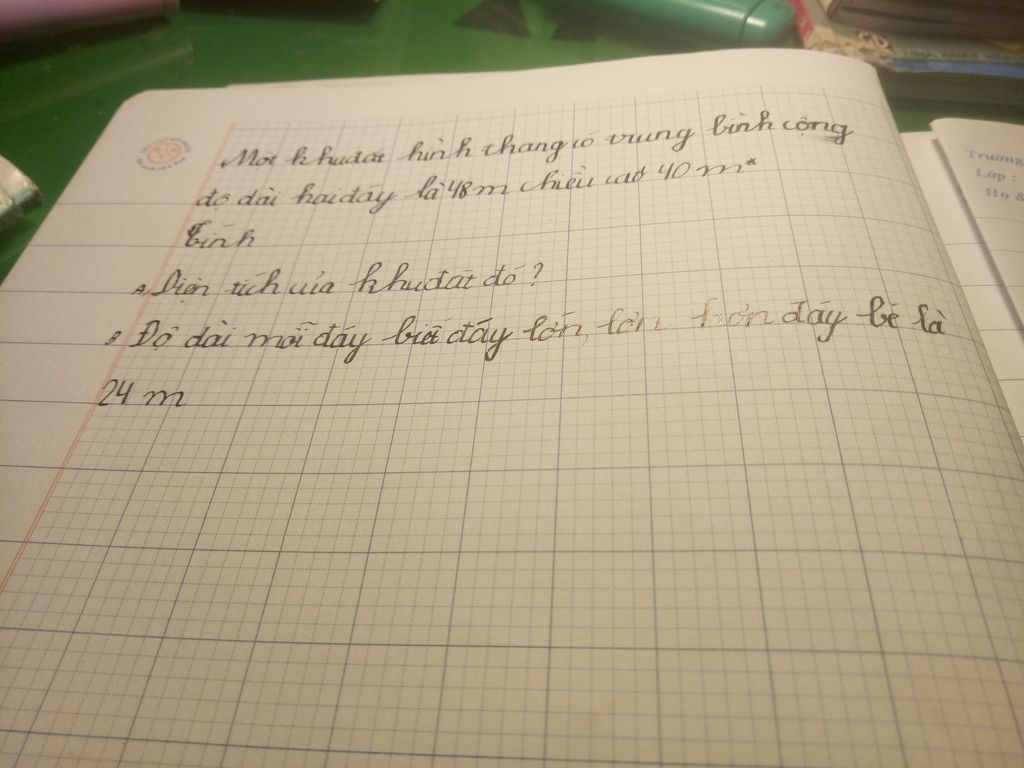 Một khu đất hình thang có trung bình cộng
độ dài hai đáy là 48 m chiều cao 40 m
Tính
A, Diện tích của khu đất đó?
B Độ dài mỗi đáy biết đáy lớn, lớn hơn đáy bé là
24 m
Trường
Lớp :
Họ &